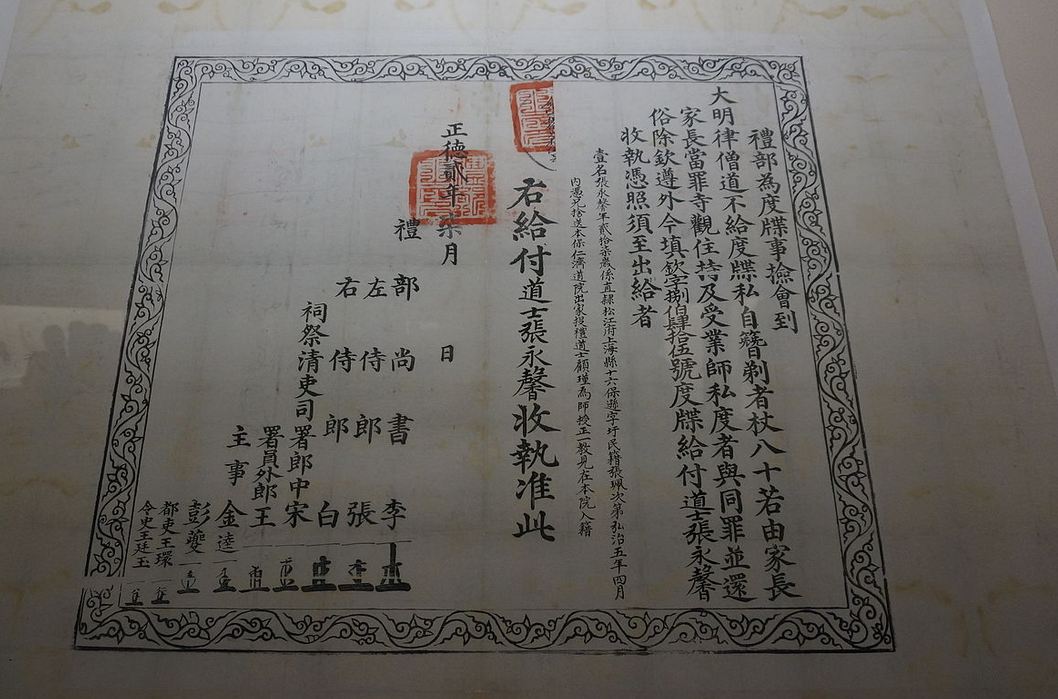 禮部為度牒事撿會到
大明律僧道不給度牒私自簪剃者杖八十若由家長
家長當罪寺觀住持及受業師私度者與同罪並還
俗除欽遵外今填欽字捌伯肆拾伍號度牒給付道士張永馨
收執憑照須至出給者
壹名張永馨年貳拾柒歲係直隸松江府上海縣十六保 字圩民籍張珮次弟弘治五年四月
內憑兄捨送本保仁濟道院出家投禮道士顧瑾為師授正一教見在本院入籍
右給付道士張永馨收執准此
正德貳年柒月 日
禮部尚書李
左侍郎張
右侍郎白
祠祭清吏司署郎中宋
署員外郎王
主事金逵
彭夔
都吏王環
令史王廷玉